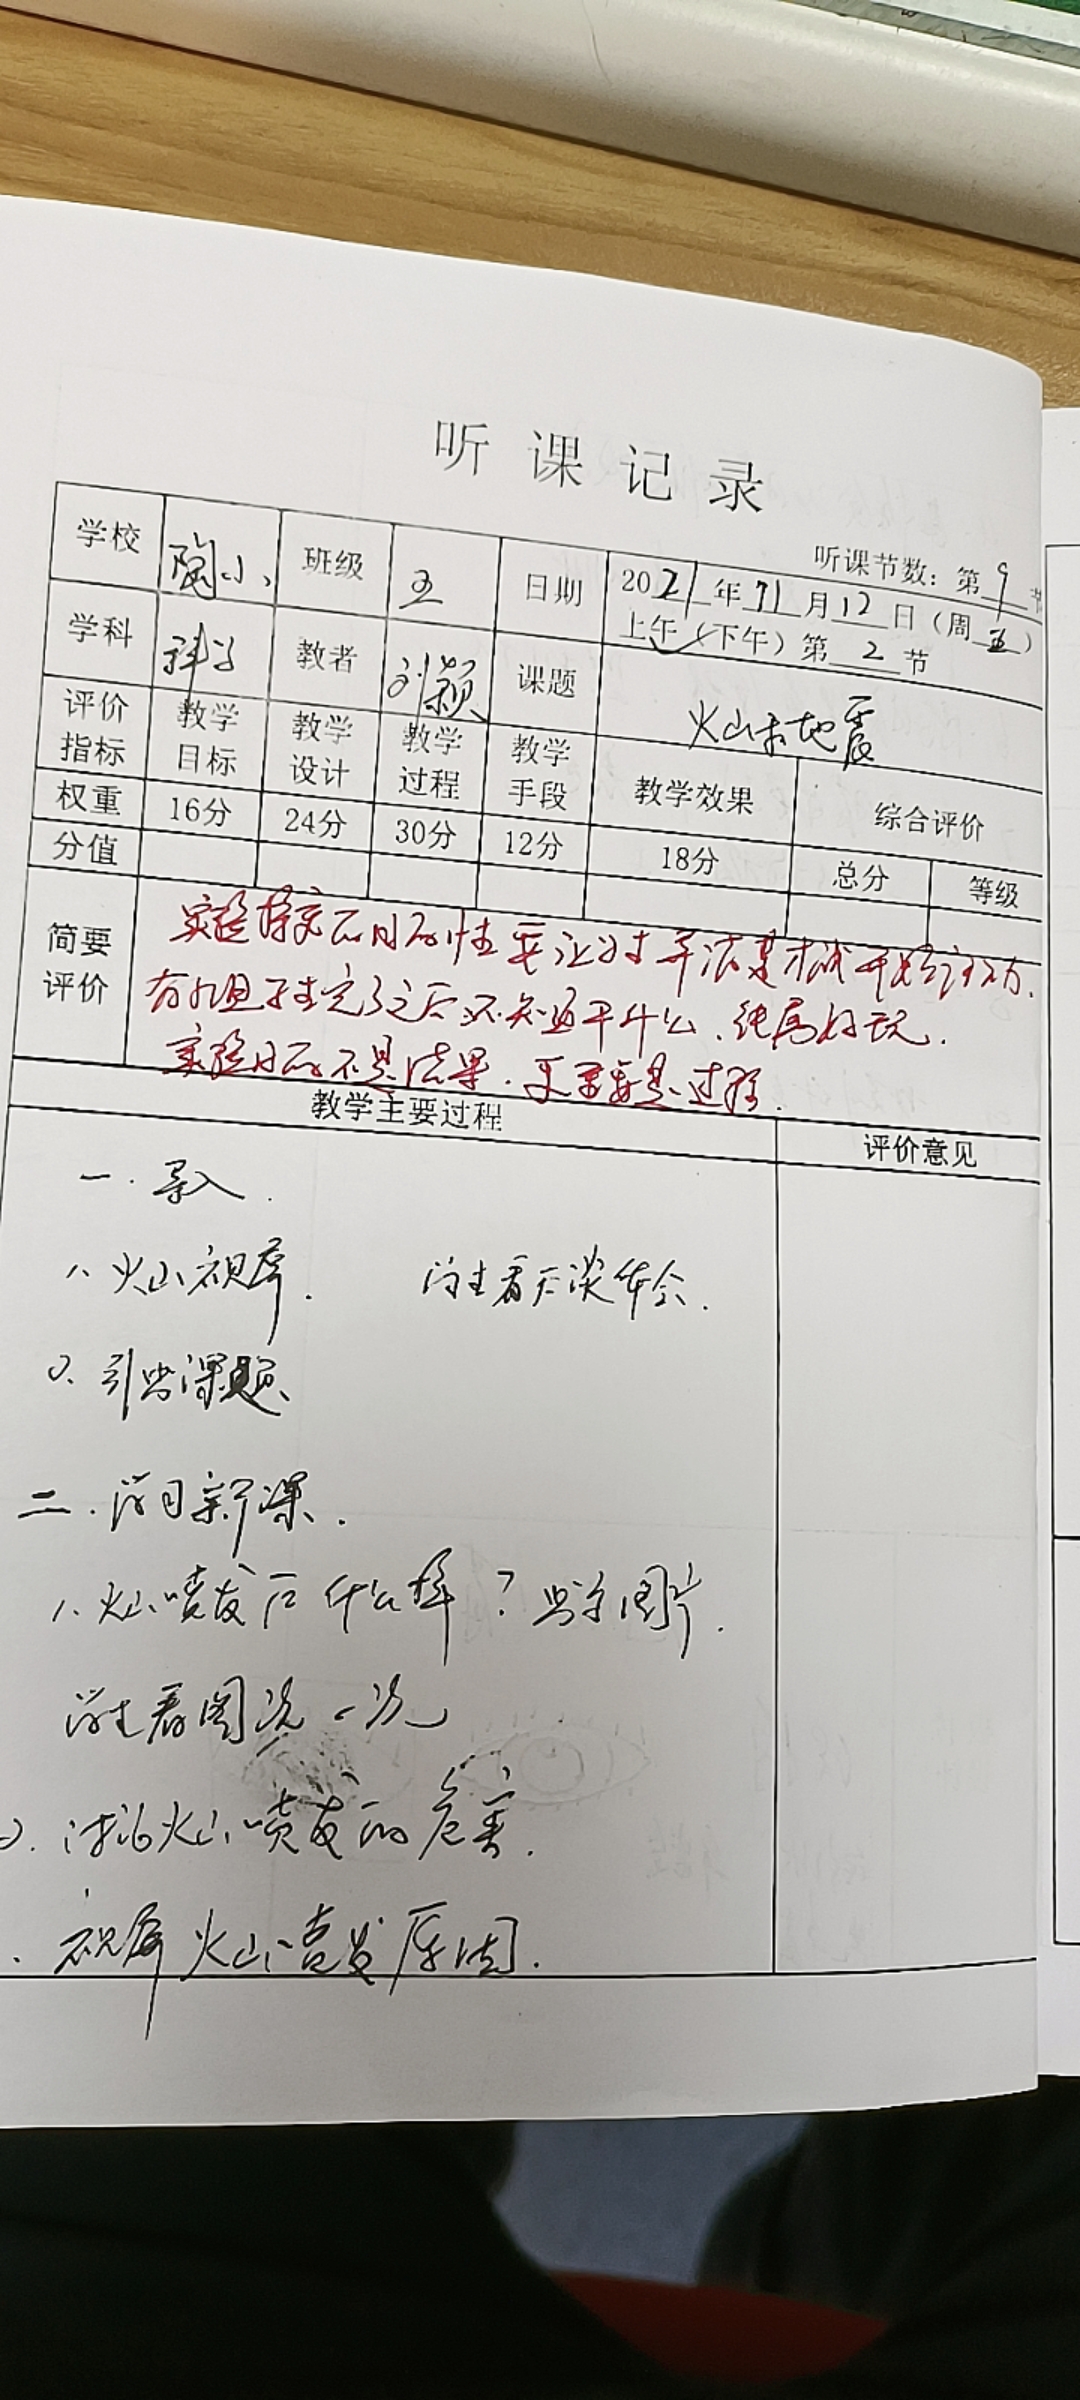 听课记录
听课节数：第 9 节
学校 陶小 班级 五 日期 2021年11月12日（周五）
上午（下午）第 2 节
学科 科学 教者 刘颖 课题 火山和地震
评价指标 教学目标 教学设计 教学过程 教学手段 教学效果 综合评价
权重 16分 24分 30分 12分 18分 总分 等级
分值
简要评价
实验探究的目的性要让学生弄清楚才能开始活动.
有的组子生完了之后不知道干什么、纯属好玩.
实验目的不是结果.更重要是过程.
教学主要过程 评价意见
一.导入.
1、火山视屏. 学生看后谈体会.
2、引出课题
二.学习新课.
1、火山喷发后什么样？出示图片.
学生看图说一说
2.讨论火山喷发的危害.
视屏火山喷发原因.